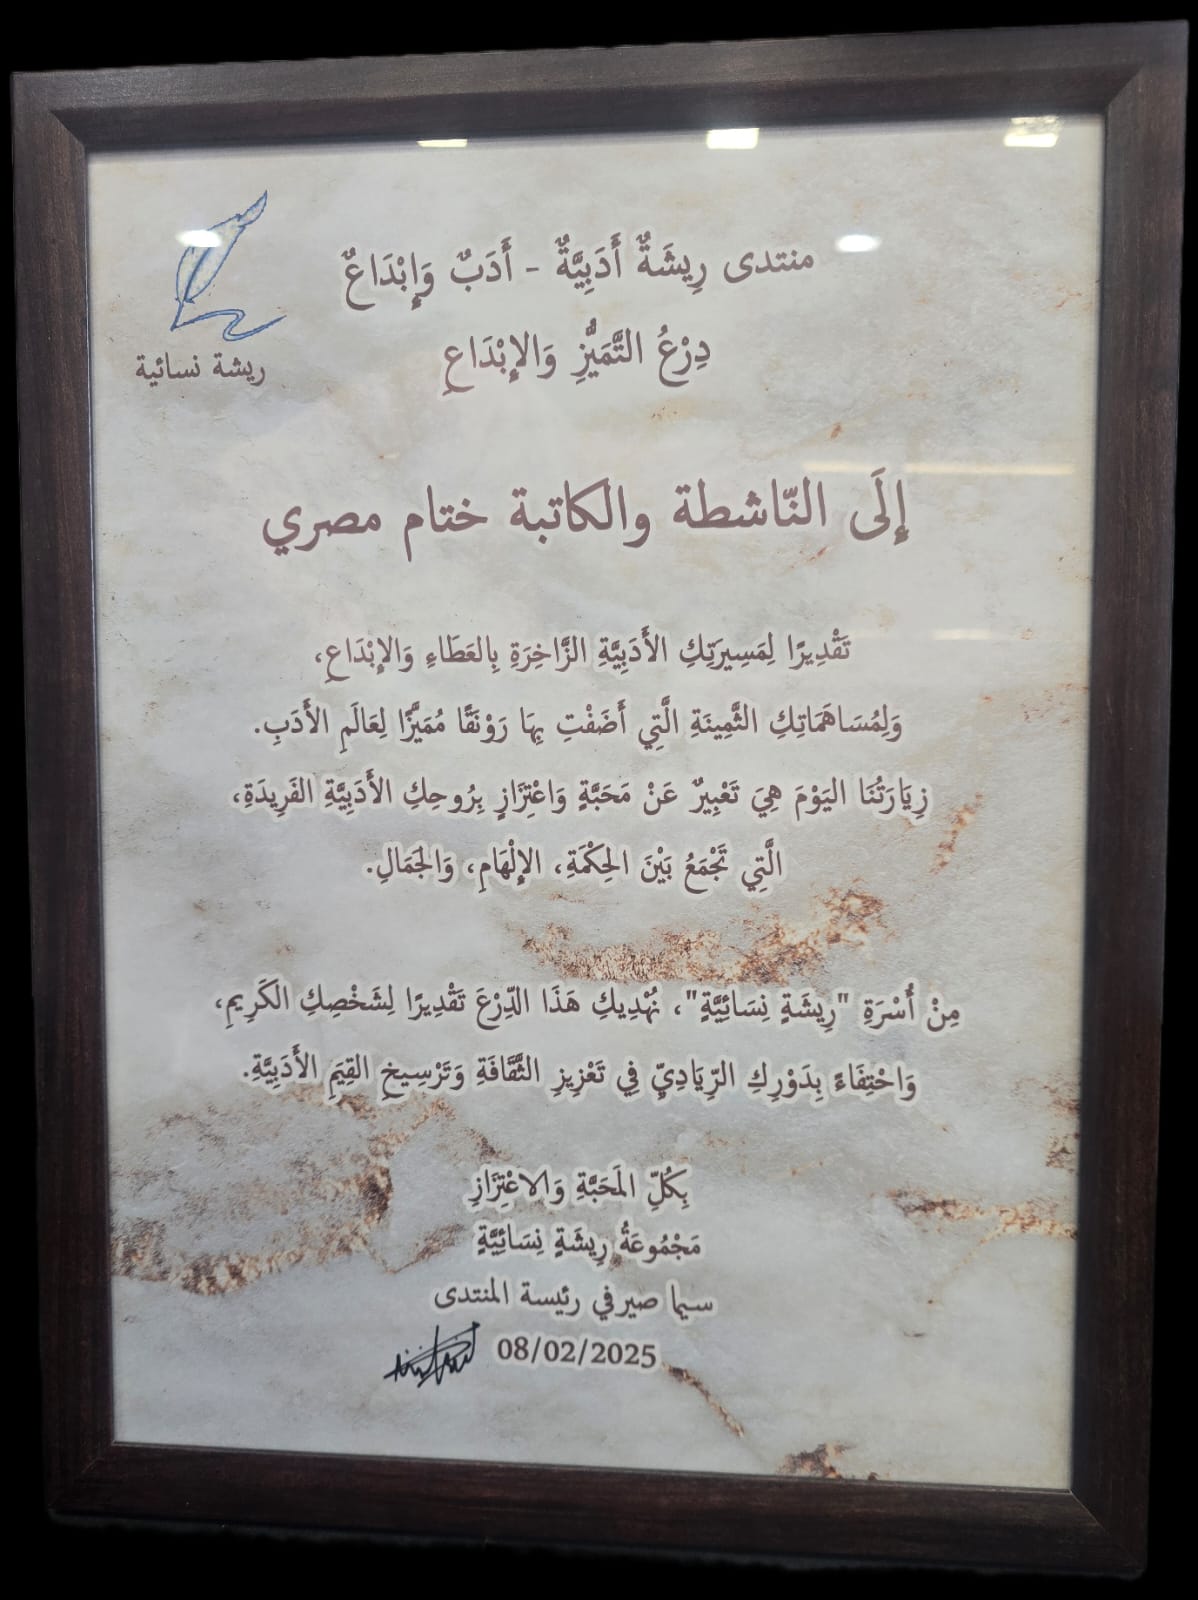 منتدى رِيشَةٌ أَدَبِيَّةٌ - أَدَبٌ وَإِبْدَاعٌ
دِرْعُ التَّمَيُّزِ وَالإِبْدَاعِ
ريشة نسائية
إِلَى النّاشطة والكاتبة ختام مصري
تَقْدِيرًا لِمَسِيرَتِكِ الأَدَبِيَّةِ الزَّاخِرَةِ بِالعَطَاءِ وَالإِبْدَاعِ،
وَلِمُسَاهَمَاتِكِ الثَّمِينَةِ الَّتِي أَضَفْتِ بِهَا رَوْنَقًا مُمَيَّزًا لِعَالَمِ الأَدَبِ.
زِيَارَتُنَا اليَوْمَ هِيَ تَعْبِيرٌ عَنْ مَحَبَّةٍ وَاعْتِزَازٍ بِرُوحِكِ الأَدَبِيَّةِ الفَرِيدَةِ،
الَّتِي تَجْمَعُ بَيْنَ الحِكْمَةِ، الإِلْهَامِ، وَالجَمَالِ.
مِنْ أُسْرَةِ "رِيشَةٍ نِسَائِيَّةٍ"، نُهْدِيكِ هَذَا الدِّرْعَ تَقْدِيرًا لِشَخْصِكِ الكَرِيمِ،
وَاحْتِفَاءً بِدَوْرِكِ الرِّيَادِيِّ فِي تَعْزِيزِ الثَّقَافَةِ وَتَرْسِيخِ القِيَمِ الأَدَبِيَّةِ.
بِكُلِّ المَحَبَّةِ وَالاعْتِزَازِ
مَجْمُوعَةُ رِيشَةٍ نِسَائِيَّةٍ
سيما صيرفي رئيسة المنتدى
08/02/2025